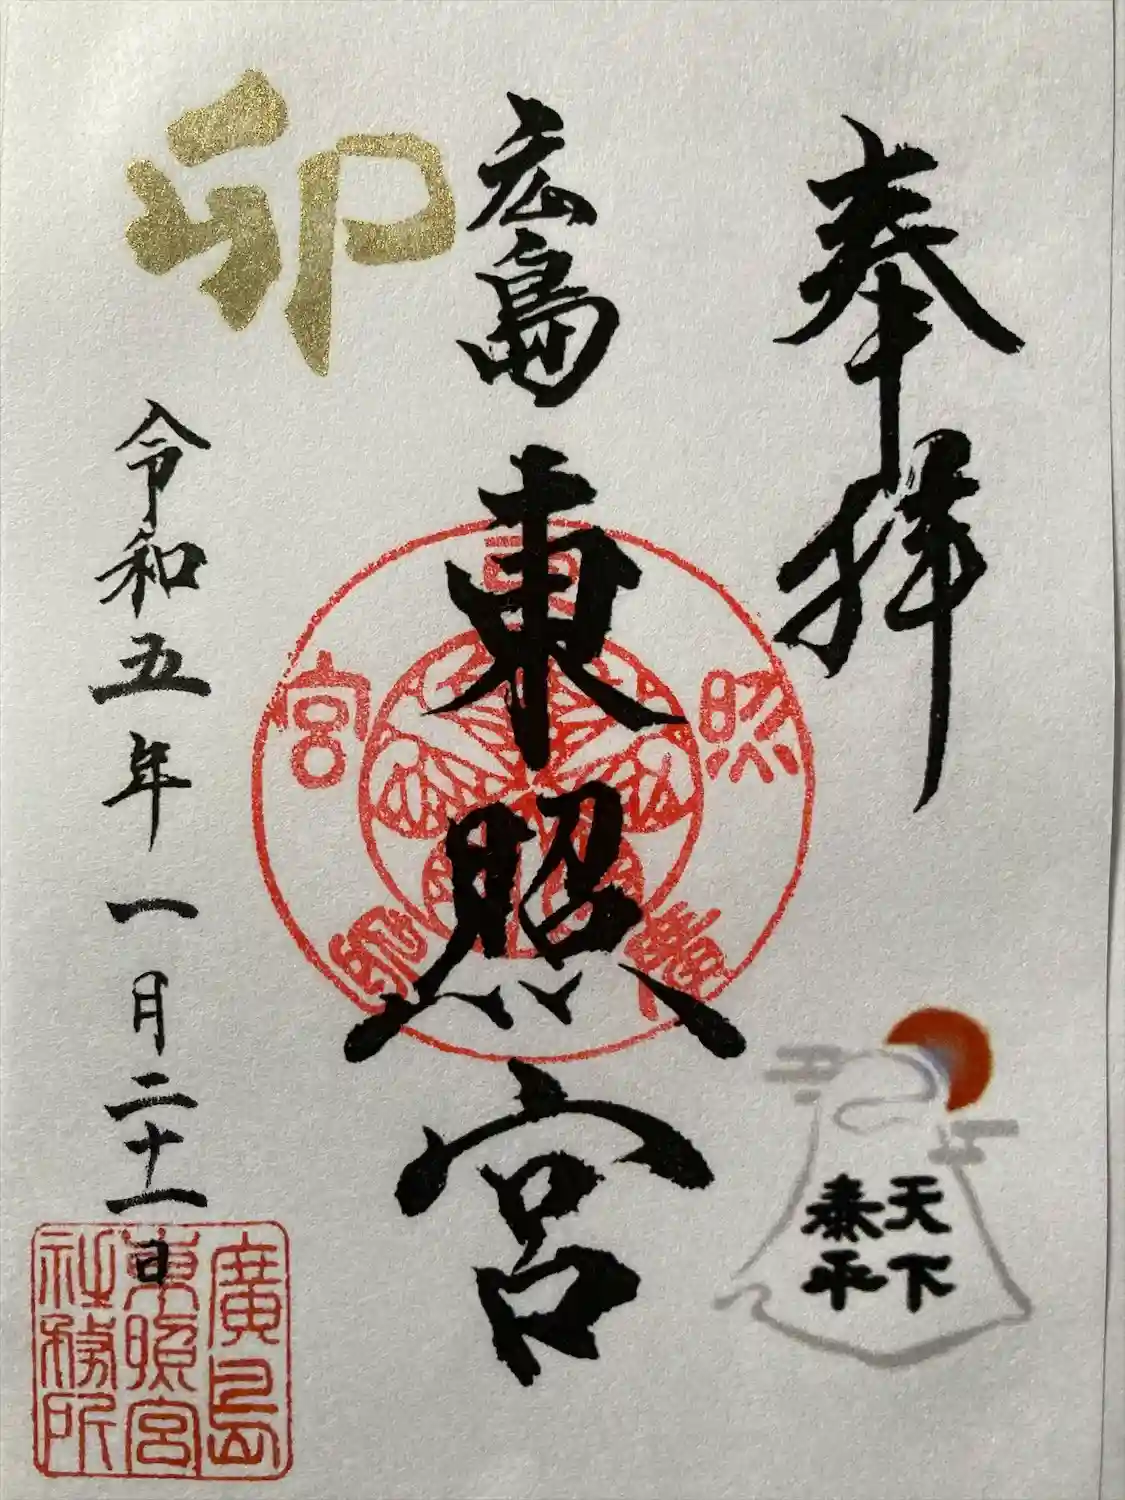 奉拝
天下
泰平
広島東照宮
卯
令和五年一月二十一日
東
照
宮
廣島
東照宮
社務所